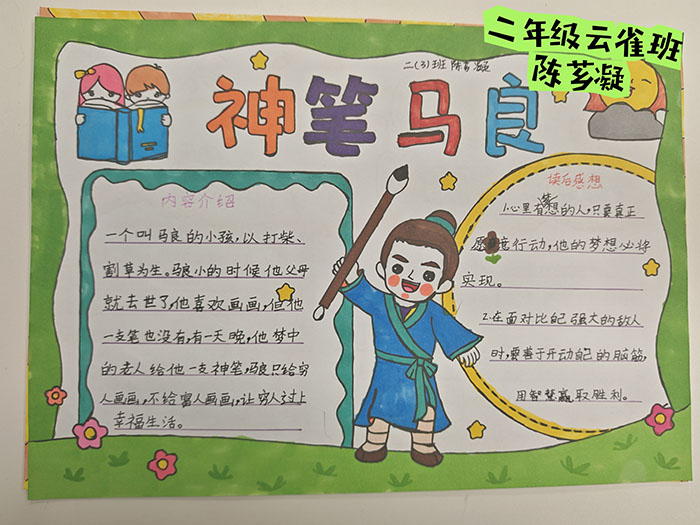 二年级云雀班
陈芗凝
二(3)班 陈芗凝
神笔马良
内容介绍
一个叫马良的小孩,以打柴、
割草为生。马良小的时候他父母
就去世了,他喜欢画画,但他
一支笔也没有,有一天晚,他梦中
的老人给他一支神笔,马良只给穷
人画画,不给富人画画,让穷人过上
幸福生活。
读后感想
1.心里有梦想的人,只要真正
愿意行动,他的梦想必将
实现。
2.在面对比自己强大的敌人
时,要善于开动自己的脑筋,
用智慧赢取胜利。